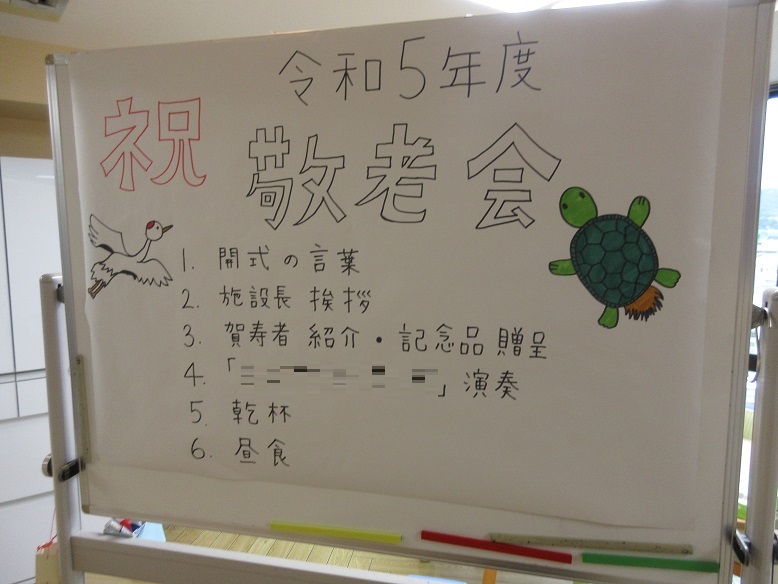 令和5年度
祝 敬老会
1. 開式の言葉
2. 施設長 挨拶
3. 賀寿者 紹介・記念品 贈呈
4.「 」演奏
5. 乾杯
6. 昼食